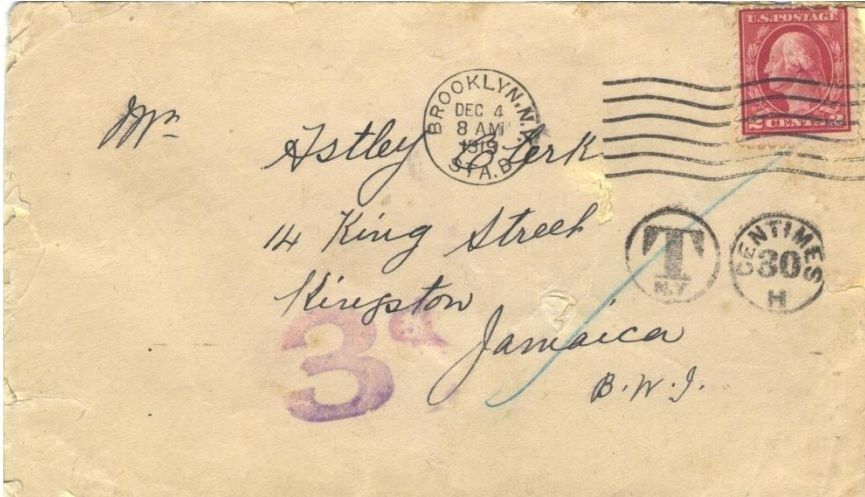 U.S. POSTAGE
2 CENTS 2
BROOKLYN, N.Y.
DEC 4
8 AM
1919
STA. B
Mr
Astley Clerk
14 King Street
Kingston
Jamaica
B.W.I.
T
N.Y.
CENTIMES
30
H
3d